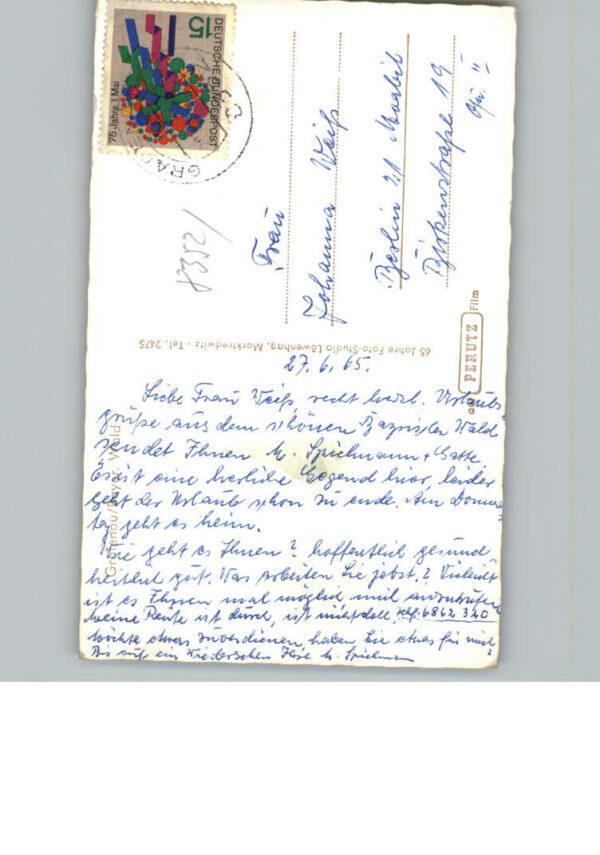 15
DEUTSCHE BUNDESPOST
75 Jahre 1. Mai
GRAFENAU
8352/
Frau
Johanna Weiß
Berlin 21 Moabit
Birkenstraße 19
65 Jahre Foto-Studio Löwenhag, Marktredwitz - Tel. 2475
auf PERUTZ Film
Grafenau/Bayer. Wald
27.6.65.
Liebe Frau Weiß, recht herzl. Urlaubs-
grüße aus dem schönen Bayrischen Wald
sendet Ihnen M. Spielmann + Gatte
Es ist eine herrliche Gegend hier, leider
geht der Urlaub schon zu ende. Am Donners-
tag geht es heim.
Wie geht es Ihnen? hoffentlich gesund-
heitlich gut. Was arbeiten Sie jetzt? Vielleicht
ist es Ihnen mal möglich mich anzurufen
meine Rente ist durch, ist nicht doll, 6862320
möchte etwas zuverdienen, haben Sie etwas für mich?
Bis auf ein Wiedersehen Ihre M. Spielmann